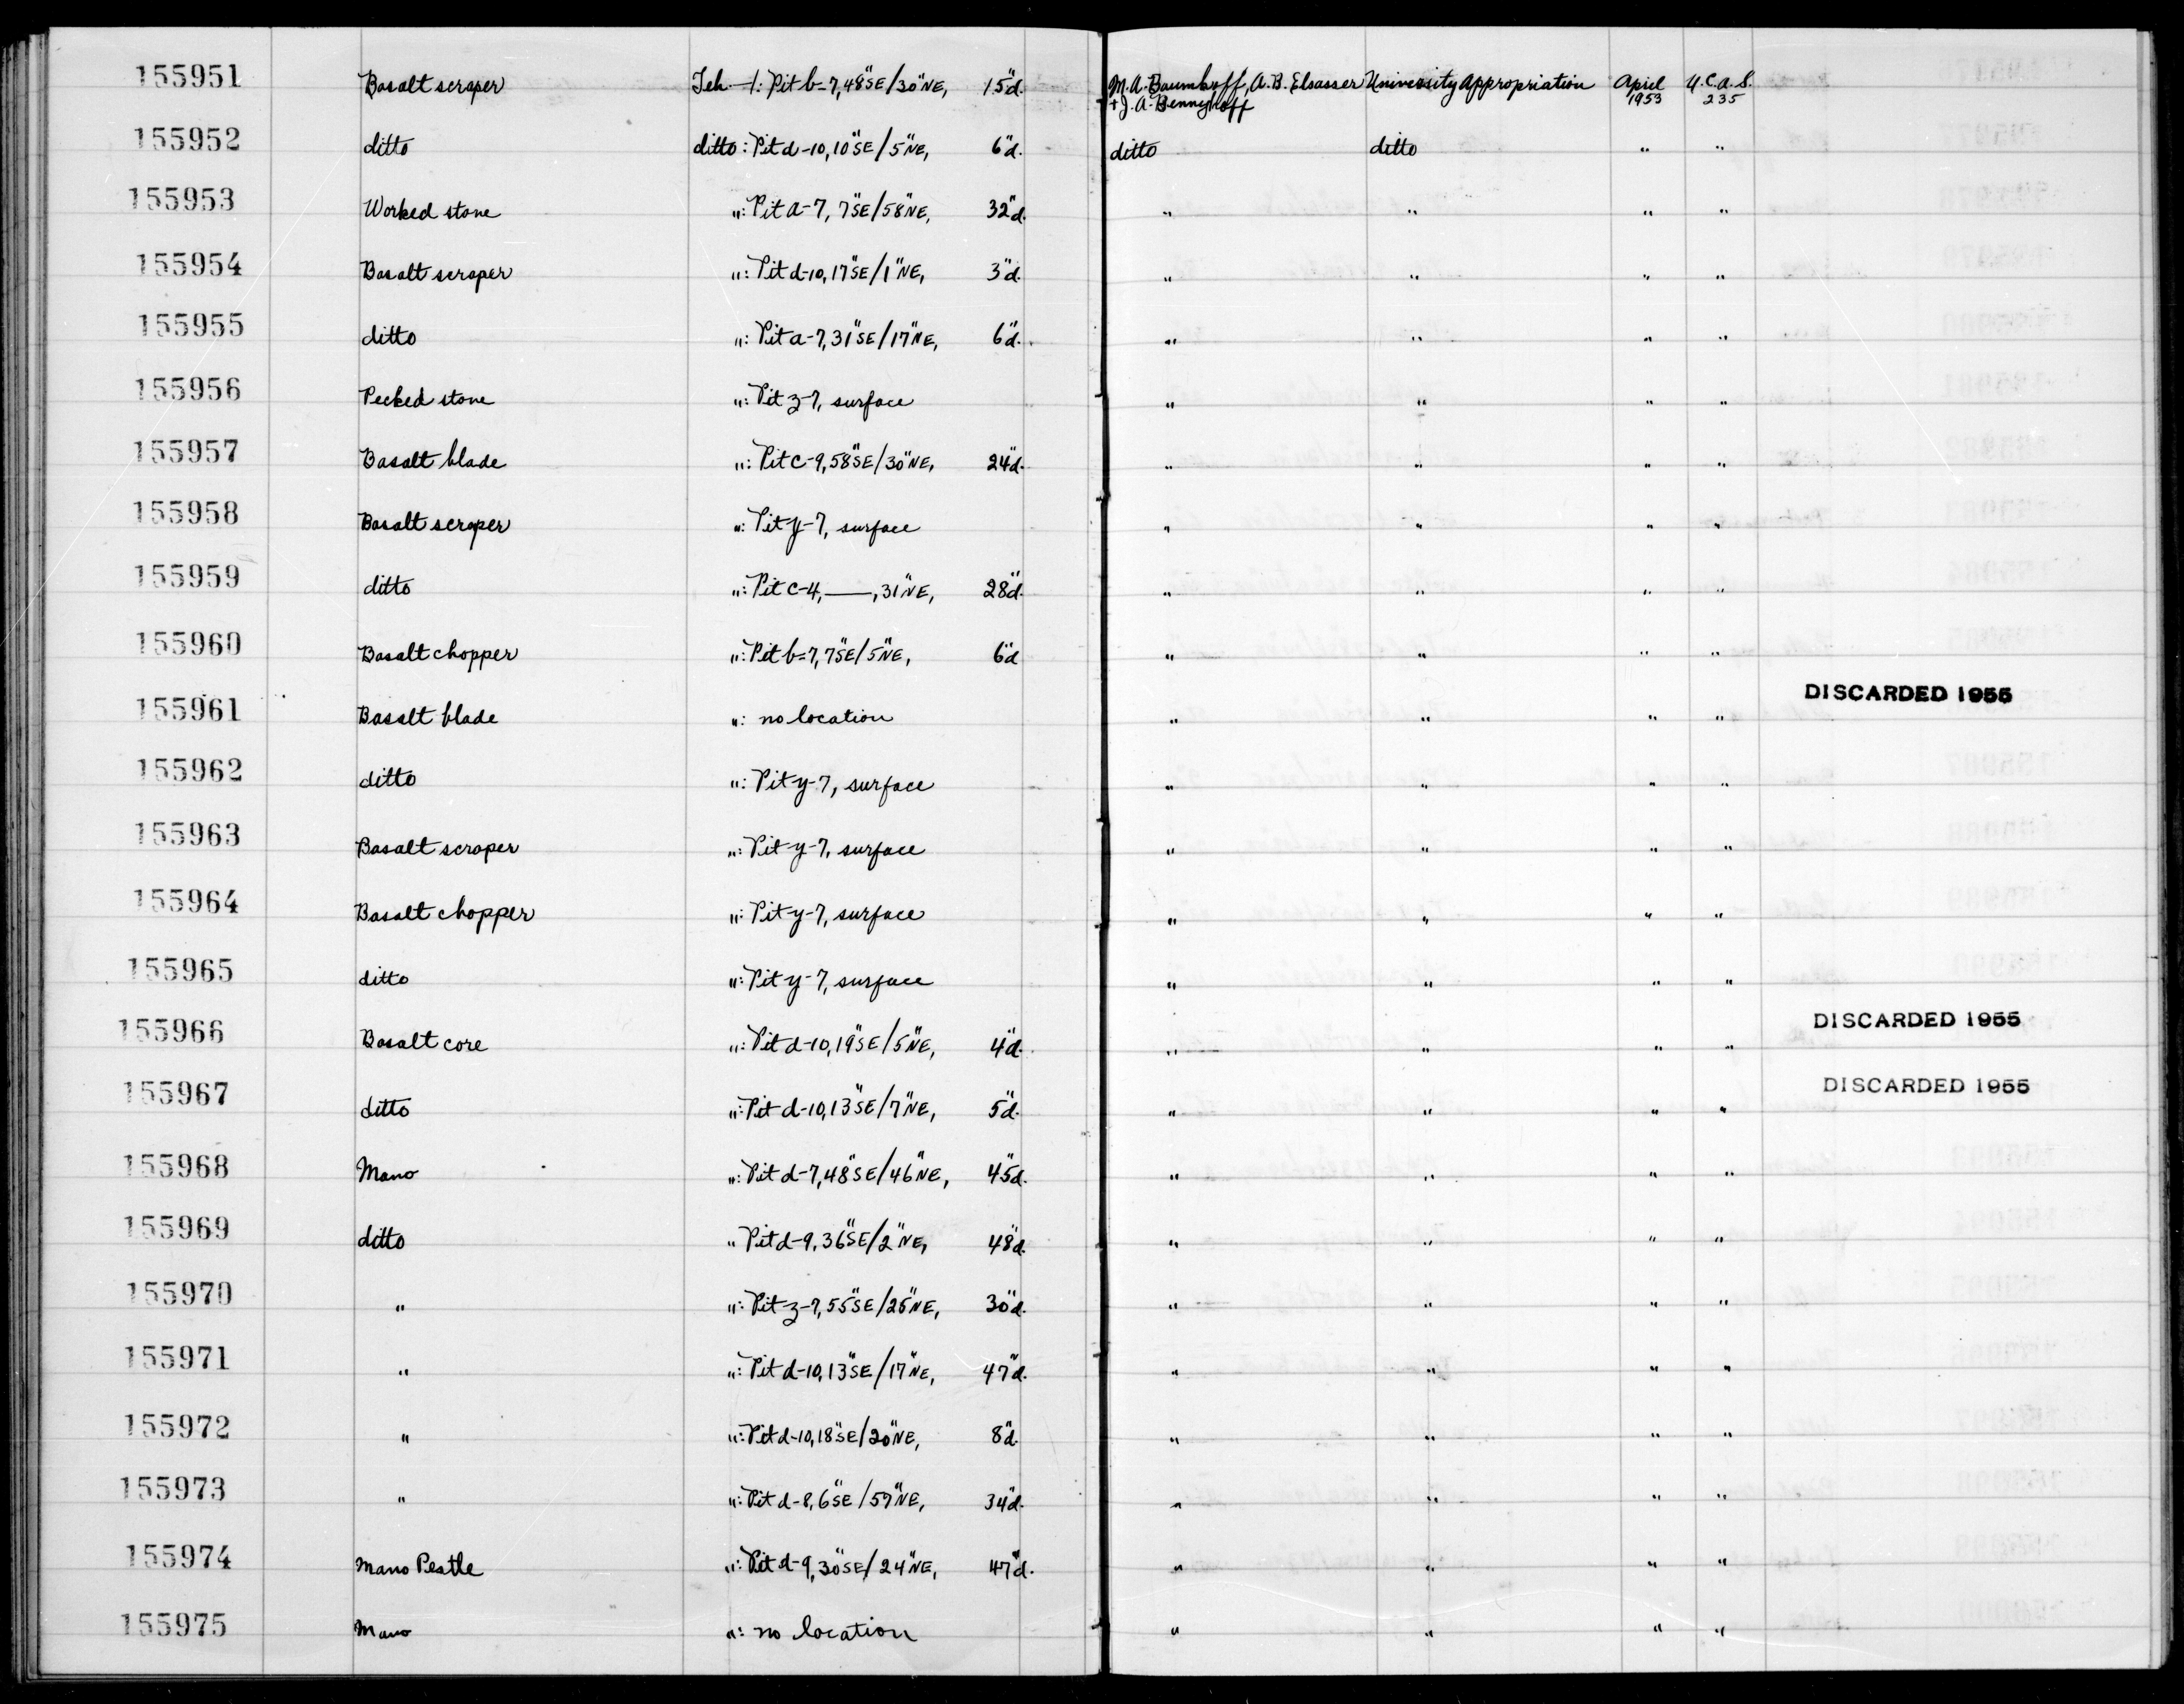 155951 Basalt scraper Teh-1: Pit b-7, 48"SE/30"NE, 15"d. M.A. Baumhoff, A.B. Elsasser University Appropriation April U.C.A.S.
+ J.A. Bennyhoff 1953 235
155952 ditto ditto: Pit d-10, 10"SE/5"NE, 6"d. ditto ditto " "
155953 Worked stone ": Pit a-7, 7"SE/58"NE, 32"d. " " " "
155954 Basalt scraper ": Pit d-10, 17"SE/1"NE, 3"d. " " " "
155955 ditto ": Pit a-7, 31"SE/17"NE, 6"d. " " " "
155956 Pecked stone ": Pit z-7, surface " " " "
155957 Basalt blade ": Pit c-9, 58"SE/30"NE, 24"d. " " " "
155958 Basalt scraper ": Pit y-7, surface " " " "
155959 ditto ": Pit c-4, —, 31"NE, 28"d. " " " "
155960 Basalt chopper ": Pit b-7, 7"SE/5"NE, 6"d " " " "
155961 Basalt blade ": no location " " " " DISCARDED 1955
155962 ditto ": Pit y-7, surface " " " "
155963 Basalt scraper ": Pit y-7, surface " " " "
155964 Basalt chopper ": Pit y-7, surface " " " "
155965 ditto ": Pit y-7, surface " " " "
155966 Basalt core ": Pit d-10, 19"SE/5"NE, 4"d. " " " " DISCARDED 1955
155967 ditto ": Pit d-10, 13"SE/7"NE, 5"d. " " " " DISCARDED 1955
155968 Mano ": Pit d-7, 48"SE/46"NE, 45"d. " " " "
155969 ditto " Pit d-9, 36"SE/2"NE, 48"d. " " " "
155970 " ": Pit z-7, 55"SE/25"NE, 30"d. " " " "
155971 " ": Pit d-10, 13"SE/17"NE, 47"d. " " " "
155972 " ": Pit d-10, 18"SE/20"NE, 8"d. " " " "
155973 " ": Pit d-8, 6"SE/59"NE, 34"d. " " " "
155974 Mano Pestle ": Pit d-9, 30"SE/24"NE, 47"d. " " " "
155975 Mano ": no location " " " "